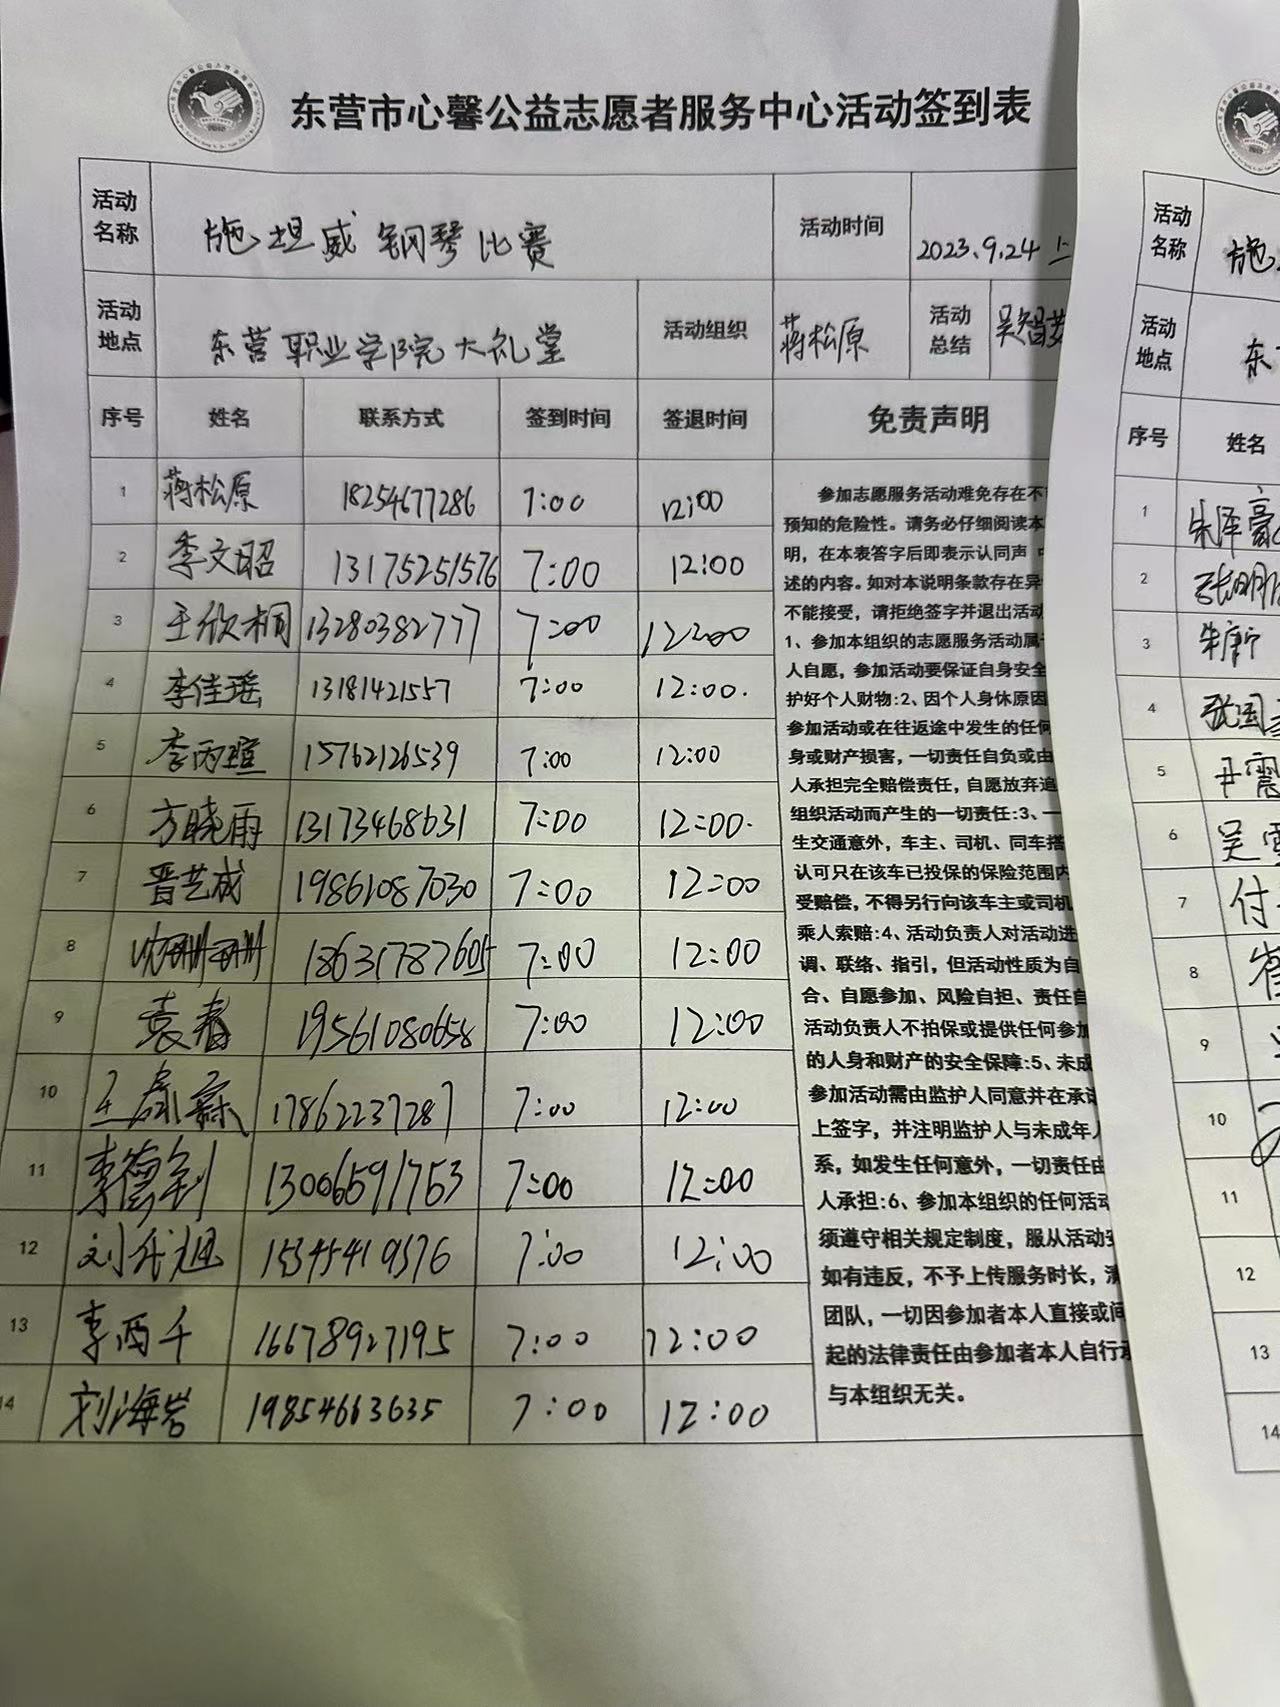 东营市心馨公益志愿者服务中心活动签到表
活动名称 施坦威钢琴比赛 活动时间 2023.9.24 上
活动地点 东营职业学院大礼堂 活动组织 蒋松原 活动总结 吴智梦
序号 姓名 联系方式 签到时间 签退时间 免责声明
1 蒋松原 18254677286 7:00 12:00
2 李文昭 13175251576 7:00 12:00
3 王欣桐 13280382777 7:00 12:00
4 李佳瑶 13181421557 7:00 12:00.
5 李丙瑄 15762126539 7:00 12:00
6 方晓雨 13173468631 7:00 12:00.
7 晋艺成 19861087030 7:00 12:00
8 18631787605 7:00 12:00
9 袁春 19561080658 7:00 12:00
10 王 霖 17862237287 7:00 12:00
11 李德钊 13006591753 7:00 12:00
12 刘 旭 15345419576 7:00 12:00
13 李丙千 16678927195 7:00 12:00
14 刘海岩 19854663635 7:00 12:00
参加志愿服务活动难免存在不
预知的危险性。请务必仔细阅读本
明，在本表答字后即表示认同声
述的内容。如对本说明条款存在异
不能接受，请拒绝签字并退出活动
1、参加本组织的志愿服务活动属
人自愿，参加活动要保证自身安全
护好个人财物:2、因个人身休原因
参加活动或在往返途中发生的任何
身或财产损害，一切责任自负或由
人承担完全赔偿责任，自愿放弃追
组织活动而产生的一切责任:3、一
生交通意外，车主、司机、同车搭
认可只在该车已投保的保险范围内
受赔偿，不得另行向该车主或司机
乘人索赔:4、活动负责人对活动进
调、联络、指引，但活动性质为自
合、自愿参加、风险自担、责任自
活动负责人不拍保或提供任何参加
的人身和财产的安全保障:5、未成
参加活动需由监护人同意并在承诺
上签字，并注明监护人与未成年人
系，如发生任何意外，一切责任由
人承担:6、参加本组织的任何活动
须遵守相关规定制度，服从活动安
如有违反，不予上传服务时长，清
团队，一切因参加者本人直接或间
起的法律责任由参加者本人自行承
与本组织无关。
活动名称 施
活动地点 东
序号 姓名
1 朱泽豪
2 张明
3 朱康宁
4 张国
5 丹震
6 吴雪
7 付
8 崔
9
10
11
12
13
14